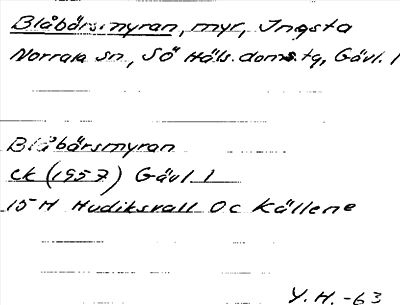 Blåbärsmyran, myr, Ingsta
Norrala sn, Sö Häls. doms.tg, Gävl. l
Blåbärsmyran
ek (1957) Gävl l
15 H Hudiksvall Oc Källene
Y.H. -63